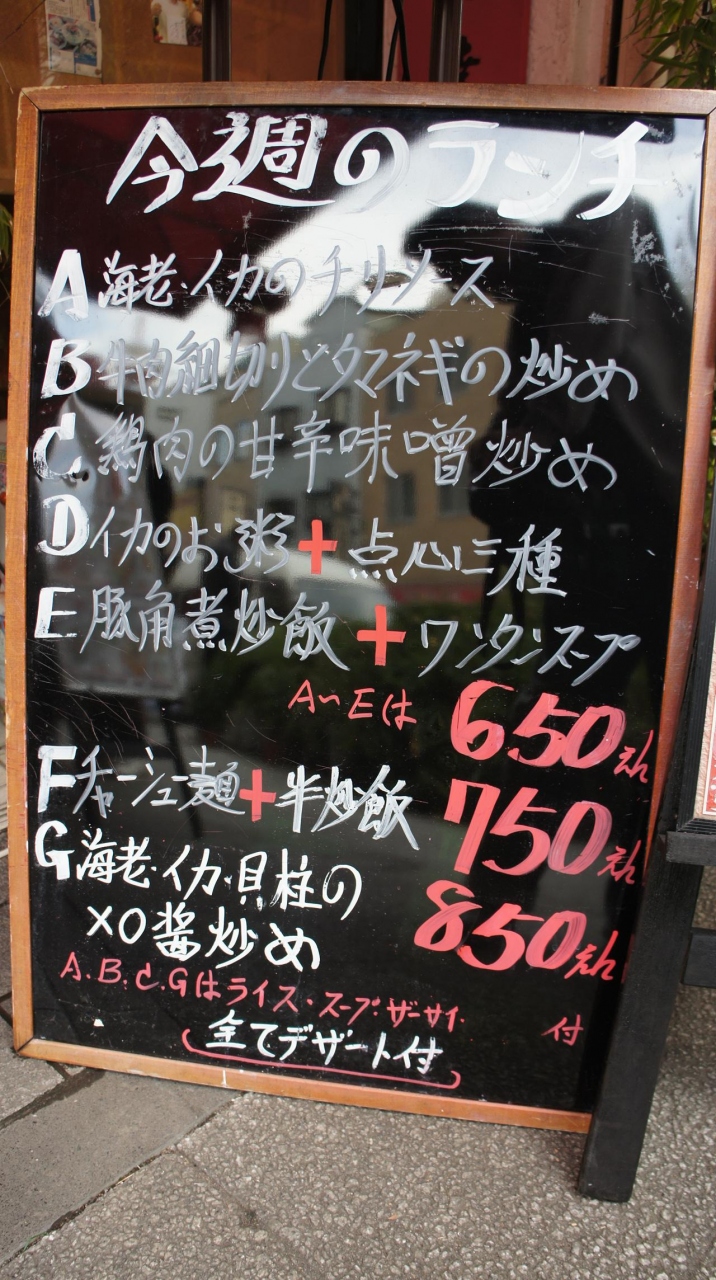 今週のランチ
A 海老・イカのチリソース
B 牛肉細切りとタマネギの炒め
C 鶏肉の甘辛味噌炒め
D イカのお粥+点心三種
E 豚角煮炒飯+ワンタンスープ
A〜Eは 650えん
F チャーシュー麺+半炒飯 750えん
G 海老・イカ・貝柱の
XO醤炒め 850えん
A.B.C.Gはライス・スープ・ザーサイ・ 付
全てデザート付